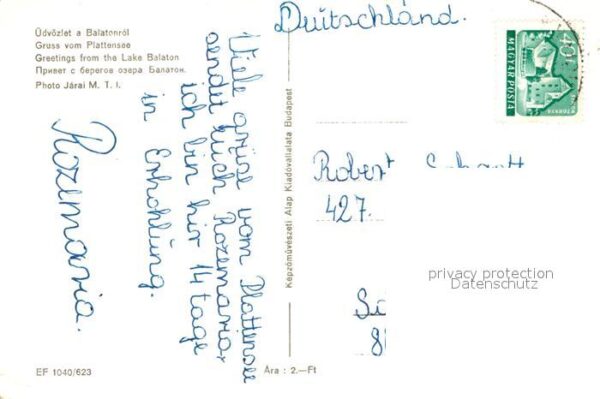 Üdvözlet a Balatonról
Gruss vom Plattensee
Greetings from the Lake Balaton
Привет с берегов озера Балатон
Photo Járai M. T. I.
Viele grüse vom Plattensee
sendet Euch Rozemaria,
ich bin hir 14 tage
in Erhohlung.
Rozemaria.
EF 1040/623
Képzőművészeti Alap Kiadóvállalata Budapest
Ára : 2.—Ft
Deutschland.
MAGYAR POSTA
Robert
427.
privacy protection
Datenschutz